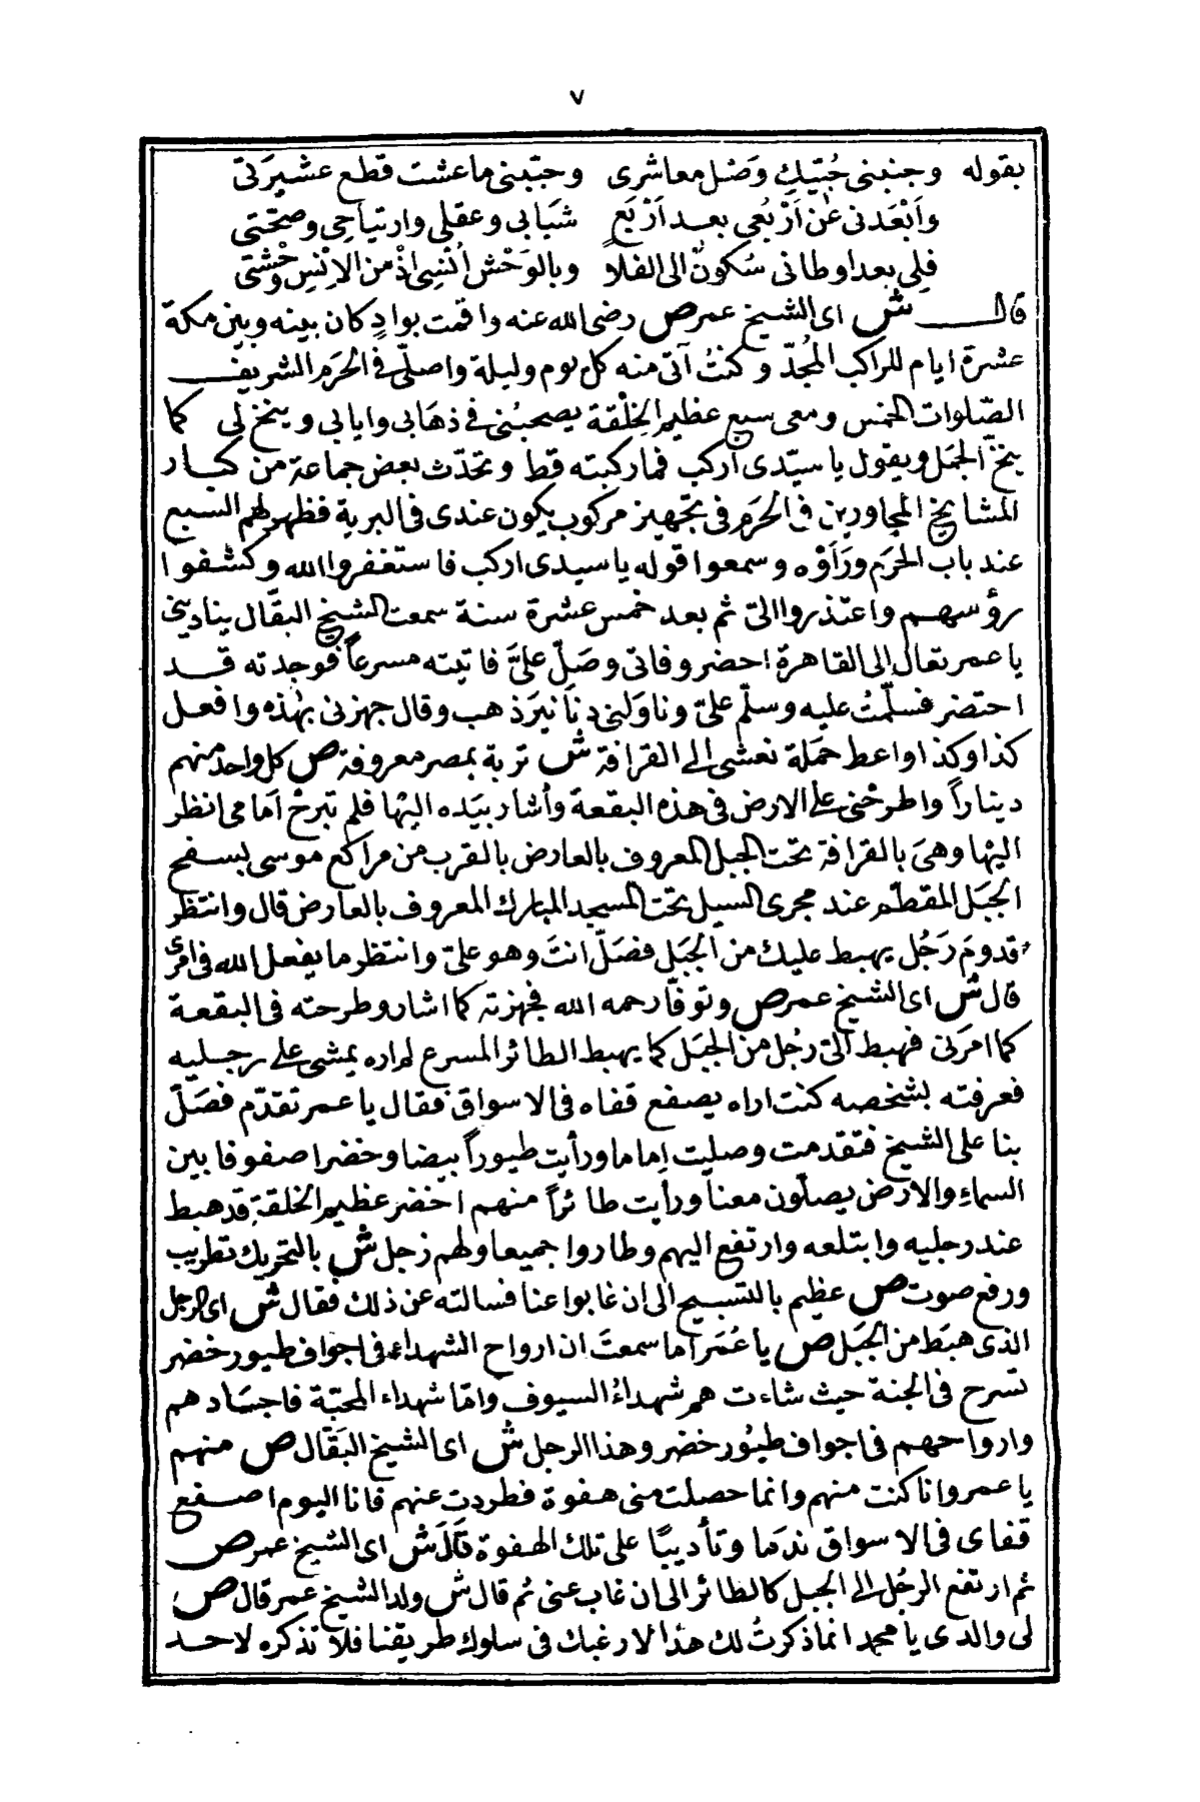 ٧
بقوله وجنبنى حُبّيكِ وَصْل معاشرى وحبّبنى ما عشت قطع عشيرَتى
وأَبْعَدنى عن أَرْبُعى بعد أَرْبَعٍ شبَابى وعقلى وارتياحى وصحّتى
فلِى بعد اوطانى سُكونٌ الى الفلا وبالوَحْش اُنْسِى اذْ من الاِنْسِ وَحْشتى
قال ش اى الشيخ عمر ص رضى الله عنه واقمت بوادٍ كان بينه وبين مكة
عشرة ايام للراكب المُجُدّ وكنتُ آتى منه كل يوم وليلة واصلّى فى الحَرَم الشريف
الصّلوات الخمس ومعى سبع عظيم الخِلْقة يصحبُنى فى ذهَابى وايابى وينخ لى كما
ينخّ الجَمَل ويقول يا سيّدى اركب فما ركبته قط وتحَدّث بعض جماعة من كبار
المشايخ المجاورين فى الحَرَم فى تجهيز مركوب يكون عندى فى البرية فظهر لهم السبع
عند باب الحَرَم ورَأَوْه وسمعوا قوله يا سيدى اركب فاستغفروا الله وكشفوا
رؤسهم واعتذروا الىّ ثم بعد خمس عشرة سنة سمعت الشيخ البقّال ينادينى
يا عمر تعال الى القاهرة احضر وفاتى وصَلّ علىَّ فاتيته مسرعاً فوجدته قد
احتضر فسلّمتُ عليه وسلّم علىّ وناوَلنى دنَانيرَ ذهب وقال جهزنى بهذه وافعل
كذا وكذا واعط حمَلة نعشى الى القرافة ش تربة بمصر معروفة ص كل واحد منهم
ديناراً واطرحْنى على الارض فى هذه البقعة وأشار بيَده اليها فلم تبرحْ أمامى انظر
اليها وهىَ بالقرافة تحت الجبل المعروف بالعارض بالقرب من مراكع موسى بسفح
الجَبَل المقطّم عند مجرى السيل تحت المسجد المبارك المعروف بالعارض قال وانتظر
قدومَ رَجُل يهبط عليك من الجَبَل فصَلّ انتَ وهو علىّ وانتظر ما يفعل الله فى امرى
قال ش اى الشيخ عمر ص وتوفّا رحمه الله فجهزته كما اشار وطرحته فى البقعة
كما امرَنى فهبط الىّ رجُل من الجَبَل كما يهبط الطائر المسرع لم اره يمشى على رجليه
فعرفته بشخصه كنت اراه يصفع قفاه فى الاسواق فقال يا عمر تقدّم فصَلّ
بنا على الشيخ فتقدمت وصليت إماما ورأيت طيوراً بيضا وخضرا صفوفا بين
السماءِ والارض يصلّون معنا ورأيت طائراً منهم اخضر عظيم الخلقة قد هبط
عند رجليه وابتلعه وارتفع اليهم وطاروا جميعا ولهم زجل ش بالتحريك تطريب
ورفع صوت ص عظيم بالتسبيح الى ان غابوا عنا فسالته عن ذلك فقال ش اى الرجل
الذى هبَط من الجَبَل ص يا عُمَر اما سمعتَ ان ارواح الشهداء فى اجواف طيور خضر
تسرح فى الجنة حيث شاءت هم شهداءُ السيوف وامّا شهداء المحَبّة فاجسَادهم
وارواحهم فى اجواف طيُور خضر وهذا الرجل ش اى الشيخ البَقّال ص منهم
يا عمر وانا كنت منهم وانما حصلت منى هفوة فطردت عنهم فانا اليوم اصفع
قفاى فى الاسواق ندَما وتأديبًا على تلك الهفوة قَالَ ش اى الشيخ عمر ص
ثم ارتفع الرجُل الى الجبل كالطائر الى ان غاب عنى ثم قال ش ولد الشيخ عمر قال ص
لى والدى يا محمد انما ذكرتُ لك هذا لارغبك فى سلوك طريقنا فلا تذكره لاحد